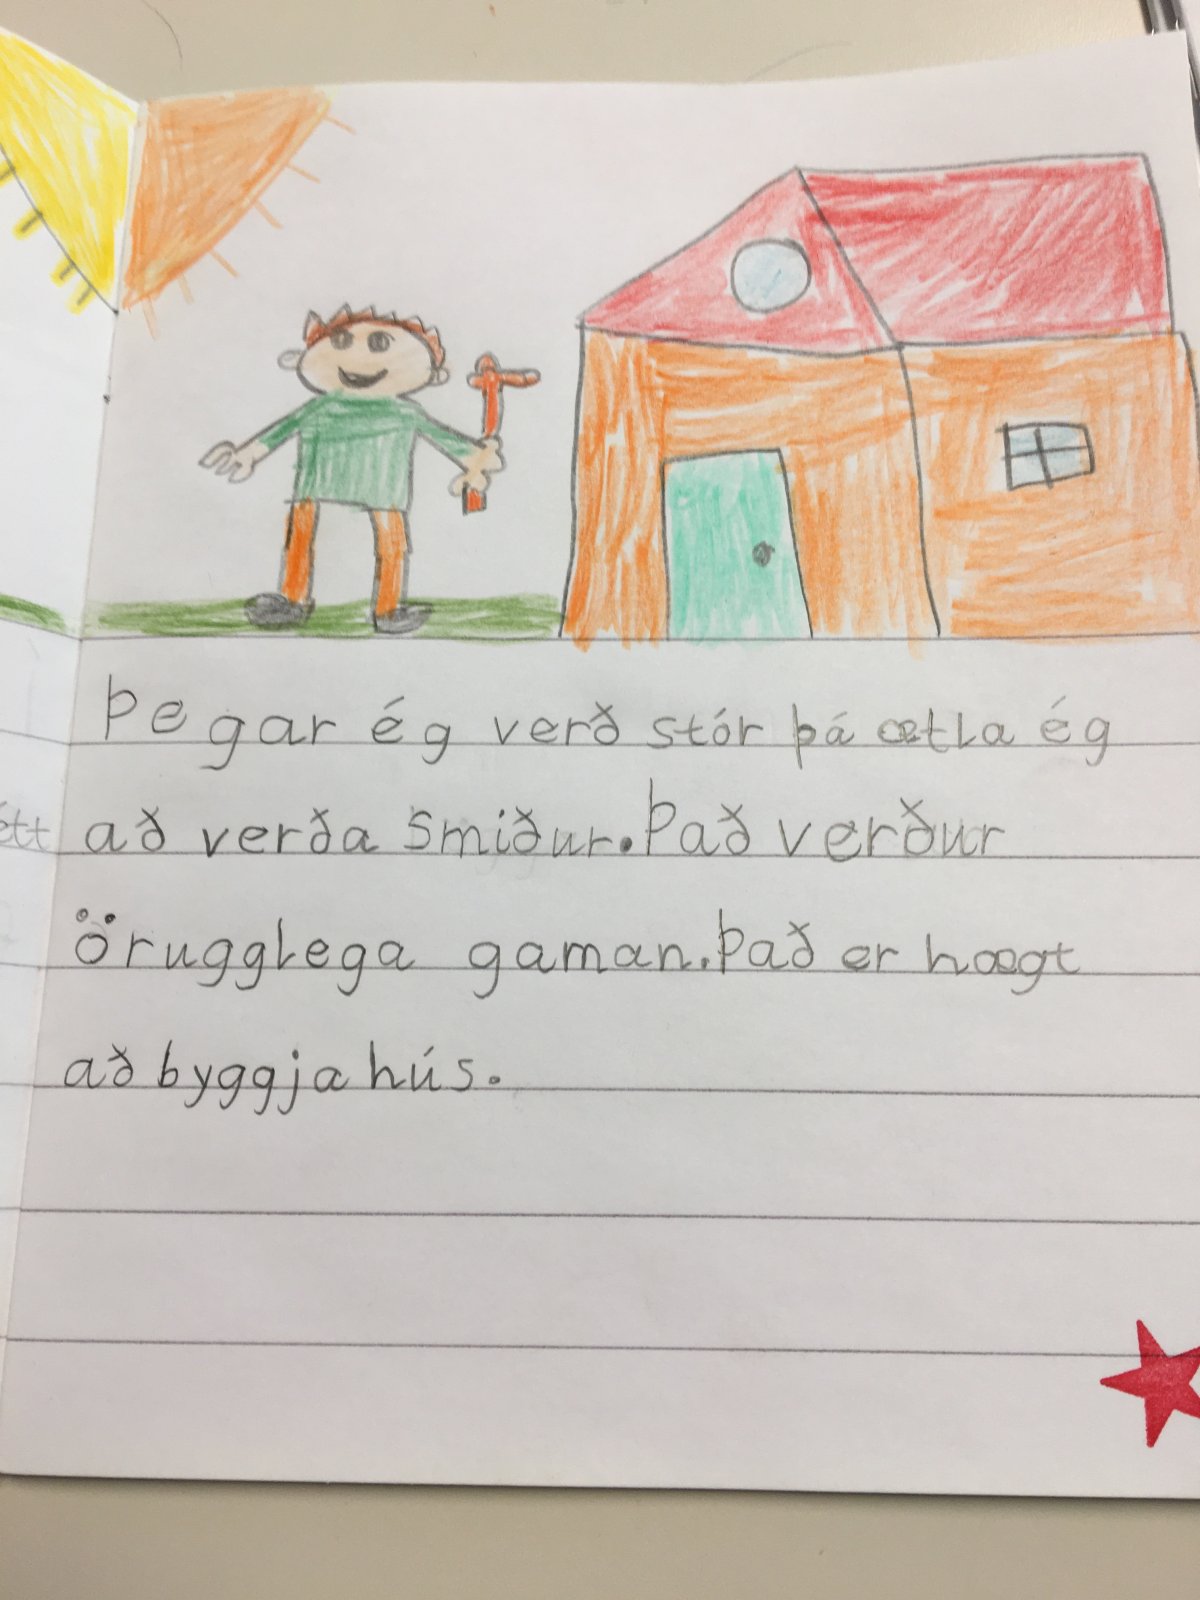 Þegar ég verð stór þá ætla ég
að verða Smiður. Það verður
örugglega gaman. Það er hægt
að byggja hús.